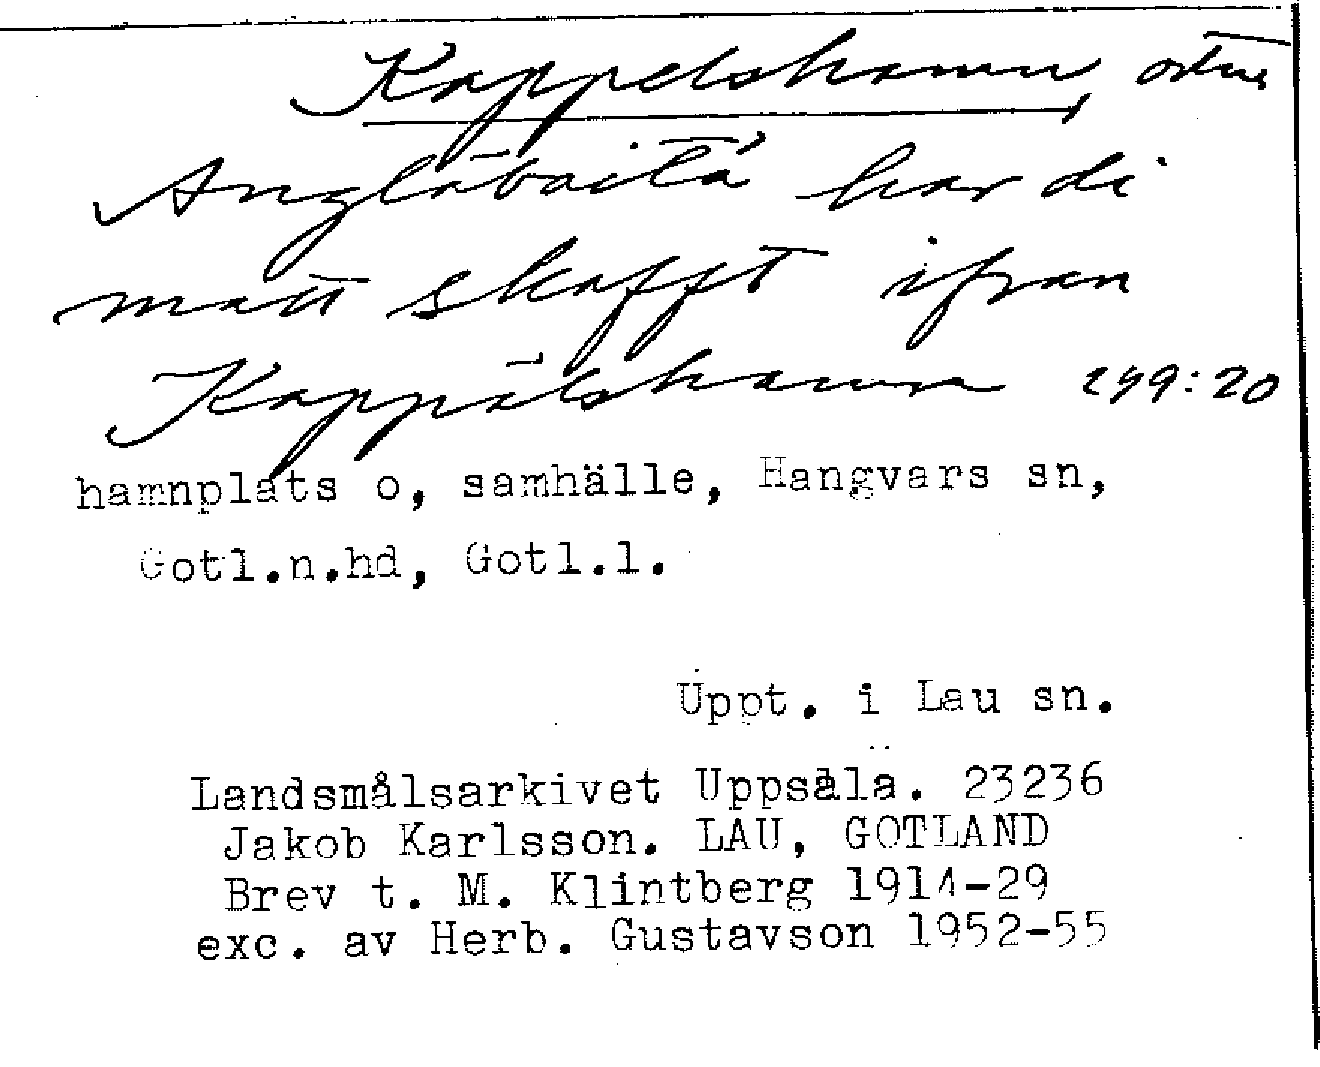 Kappelshamn, ortn
Angläbaitä har di
matt skafft ifran
Kappälshamn 249:20
hamnplats o, samhälle, Hangvars sn,
Gotl.n.hd, Gotl.l.
Uppt. i Lau sn.
Landsmålsarkivet Uppsala. 23236
Jakob Karlsson. LAU, GOTLAND
Brev t. M. Klintberg 1914-29
exc. av Herb. Gustavson 1952-55